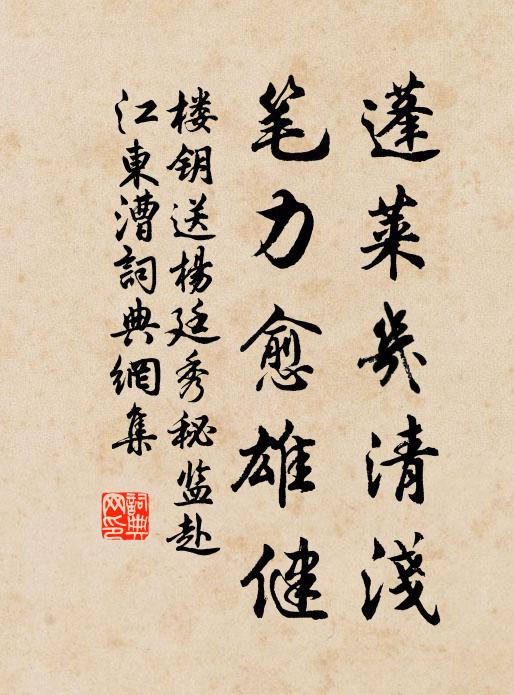 蓬莱幾清淺
笔力愈雄健
楼钥送楊廷秀秘监赴
江東漕詞典網集
詞典网印